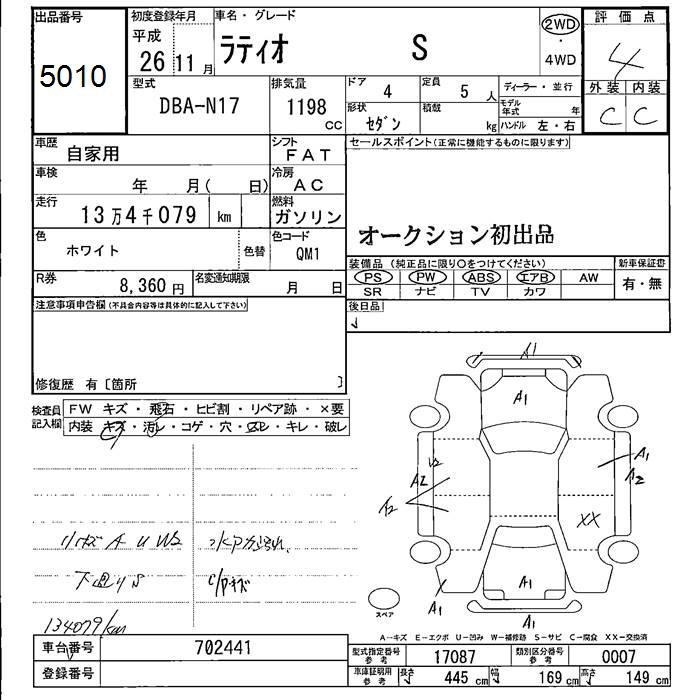 出品番号 初度登録年月 車名・グレード 2WD 評価点
5010 平成 26 11月 ラティオ S ・ 4WD 4
型式 排気量 ドア 4 定員 5人 ディーラー・並行 外装 内装
DBA-N17 1198 cc 形状 セダン 積載 kg モデル年式 年 ハンドル 左・右 C C
車歴 自家用 シフト FAT セールスポイント(正常に機能するものに限ります)
車検 年 月( 日) 冷房 AC
走行 13万4千079 km 燃料 ガソリン オークション初出品
色 ホワイト 色替 色コード QM1
装備品(純正品に限り○をつけてください) 新車保証書
PS PW ABS エアB AW 有・無
SR ナビ TV カワ
R券 8,360円 名変通知期限 月 日
後日品
注意事項申告欄(不具合内容等は具体的に記入して下さい)
修復歴 有〔箇所 〕
検査員記入欄 FW キズ・飛石・ヒビ割・リペア跡・×要
内装 キズ・汚レ・コゲ・穴・スレ・キレ・破レ
A1
A1
V2
A2
A2
A1
A2
XX
A1
A1
A1
リキズ A U W2
下廻りS
C/Pキズ
134079km
スペア
A-キズ E-エクボ U-凹み W-補修跡 S-サビ C-腐食 XX-交換済
車台番号 702441
登録番号
型式指定番号 参考 17087 類別区分番号 参考 0007
車庫証明用 参考 長さ 445cm 幅 169cm 高さ 149cm